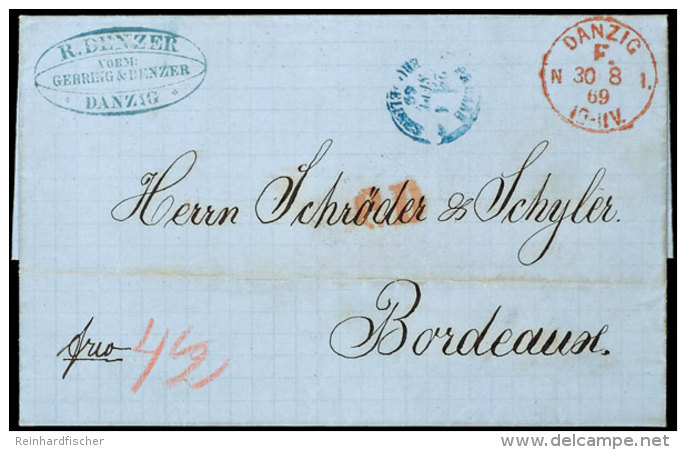 R. DENZER
VORM:
GERRING & DENZER
DANZIG
DANZIG
F.
N 30 8 1.
69
10-11V.
Herrn Schröder & Schyler.
Bordeaux.
frco 4½
Reinhardfischer
delcampe.net